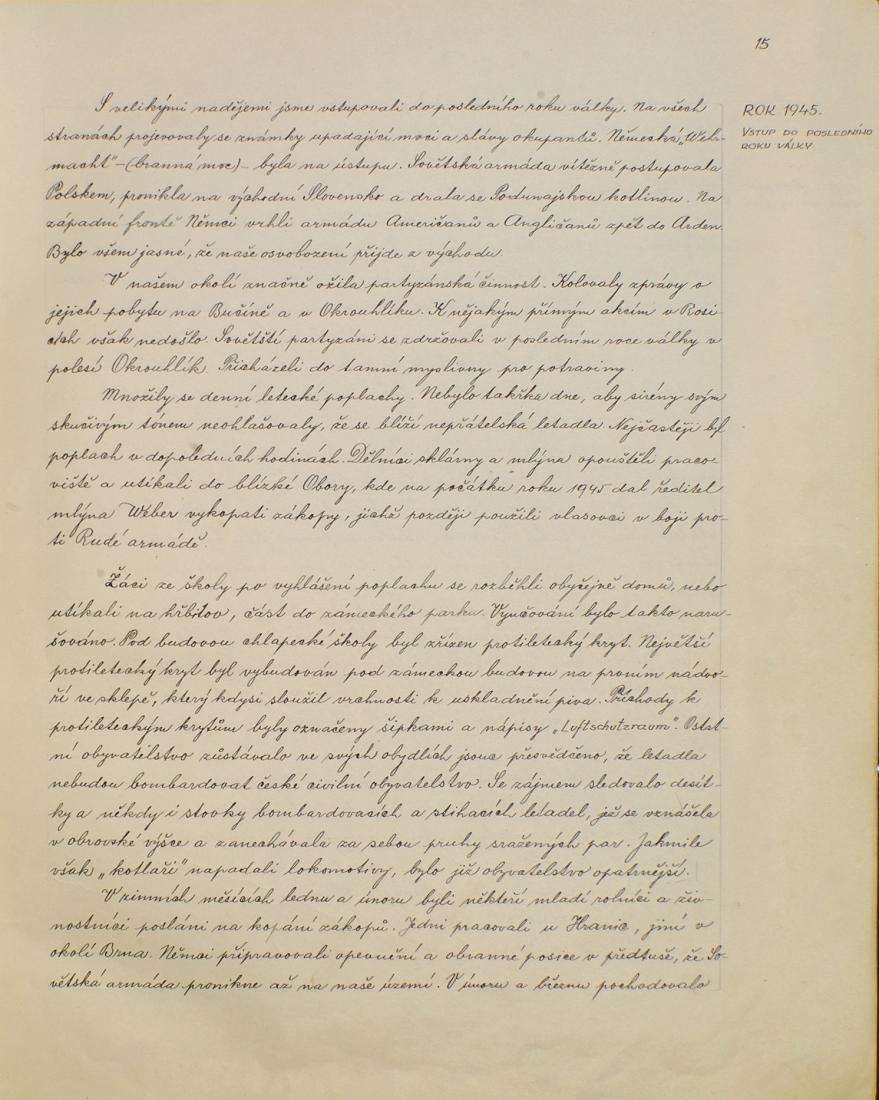 15
ROK 1945.
VSTUP DO POSLEDNÍHO
ROKU VÁLKY.
S velikými nadějemi jsme vstupovali do posledního roku války. Na všech
stranách projevovaly se známky upadající moci a slávy okupantů. Německá „Wehr-
macht" – (branná moc) – byla na ústupu. Sovětská armáda vítězně postupovala
Polskem, pronikla na východní Slovensko a drala se Podunajskou kotlinou. Na
západní frontě Němci vrhli armádu Američanů a Angličanů zpět do Arden.
Bylo všem jasné, že naše osvobození přijde z východu.
V našem okolí značně ožila partyzánská činnost. Kolovaly zprávy o
jejich pobytu na Bučině a v Okrouhlíku. K nějakým přímým akcím v Rosi-
cích však nedošlo. Sovětští partyzáni se zdržovali v posledním roce války v
polesí Okrouhlík. Přicházeli do tamní myslivny pro potraviny.
Množily se denní letecké poplachy. Nebylo takřka dne, aby sirény svým
skučivým tónem neohlašovaly, že se blíží nepřátelská letadla. Nejčastěji byl
poplach v dopoledních hodinách. Dělníci sklárny a mlýna opouštěli praco-
viště a utíkali do blízké Obory, kde na počátku roku 1945 dal ředitel
mlýna Weber vykopati zákopy, jichž později použili vlasovci v boji pro-
ti Rudé armádě.
Žáci ze školy po vyhlášení poplachu se rozběhli obyčejně domů, nebo
utíkali na hřbitov, část do zámeckého parku. Vyučování bylo takto naru-
šováno. Pod budovou chlapecké školy byl zřízen protiletecký kryt. Největší
protiletecký kryt byl vybudován pod zámeckou budovou na prvním nádvo-
ří ve sklepě, který kdysi sloužil vrchnosti k uskladnění piva. Příchody k
protileteckým krytům byly označeny šipkami a nápisy „Luftschutzraum". Ostat-
ní obyvatelstvo zůstávalo ve svých obydlích jsouc přesvědčeno, že letadla
nebudou bombardovat české civilní obyvatelstvo. Se zájmem sledovalo desít-
ky a někdy i stovky bombardovacích a stihacích letadel, jež se vznášela
v obrovské výšce a zanechávala za sebou pruhy sražených par. Jakmile
však „kotláři" napadali lokomotivy, bylo již obyvatelstvo opatrnější.
V zimních měsících lednu a únoru byli někteří mladí rolníci a živ-
nostníci posláni na kopání zákopů. Jedni pracovali u Hranic, jiní v
okolí Brna. Němci připravovali opevnění a obranné posice v předtuše, že So-
větská armáda pronikne až na naše území. V únoru a březnu pochodovalo